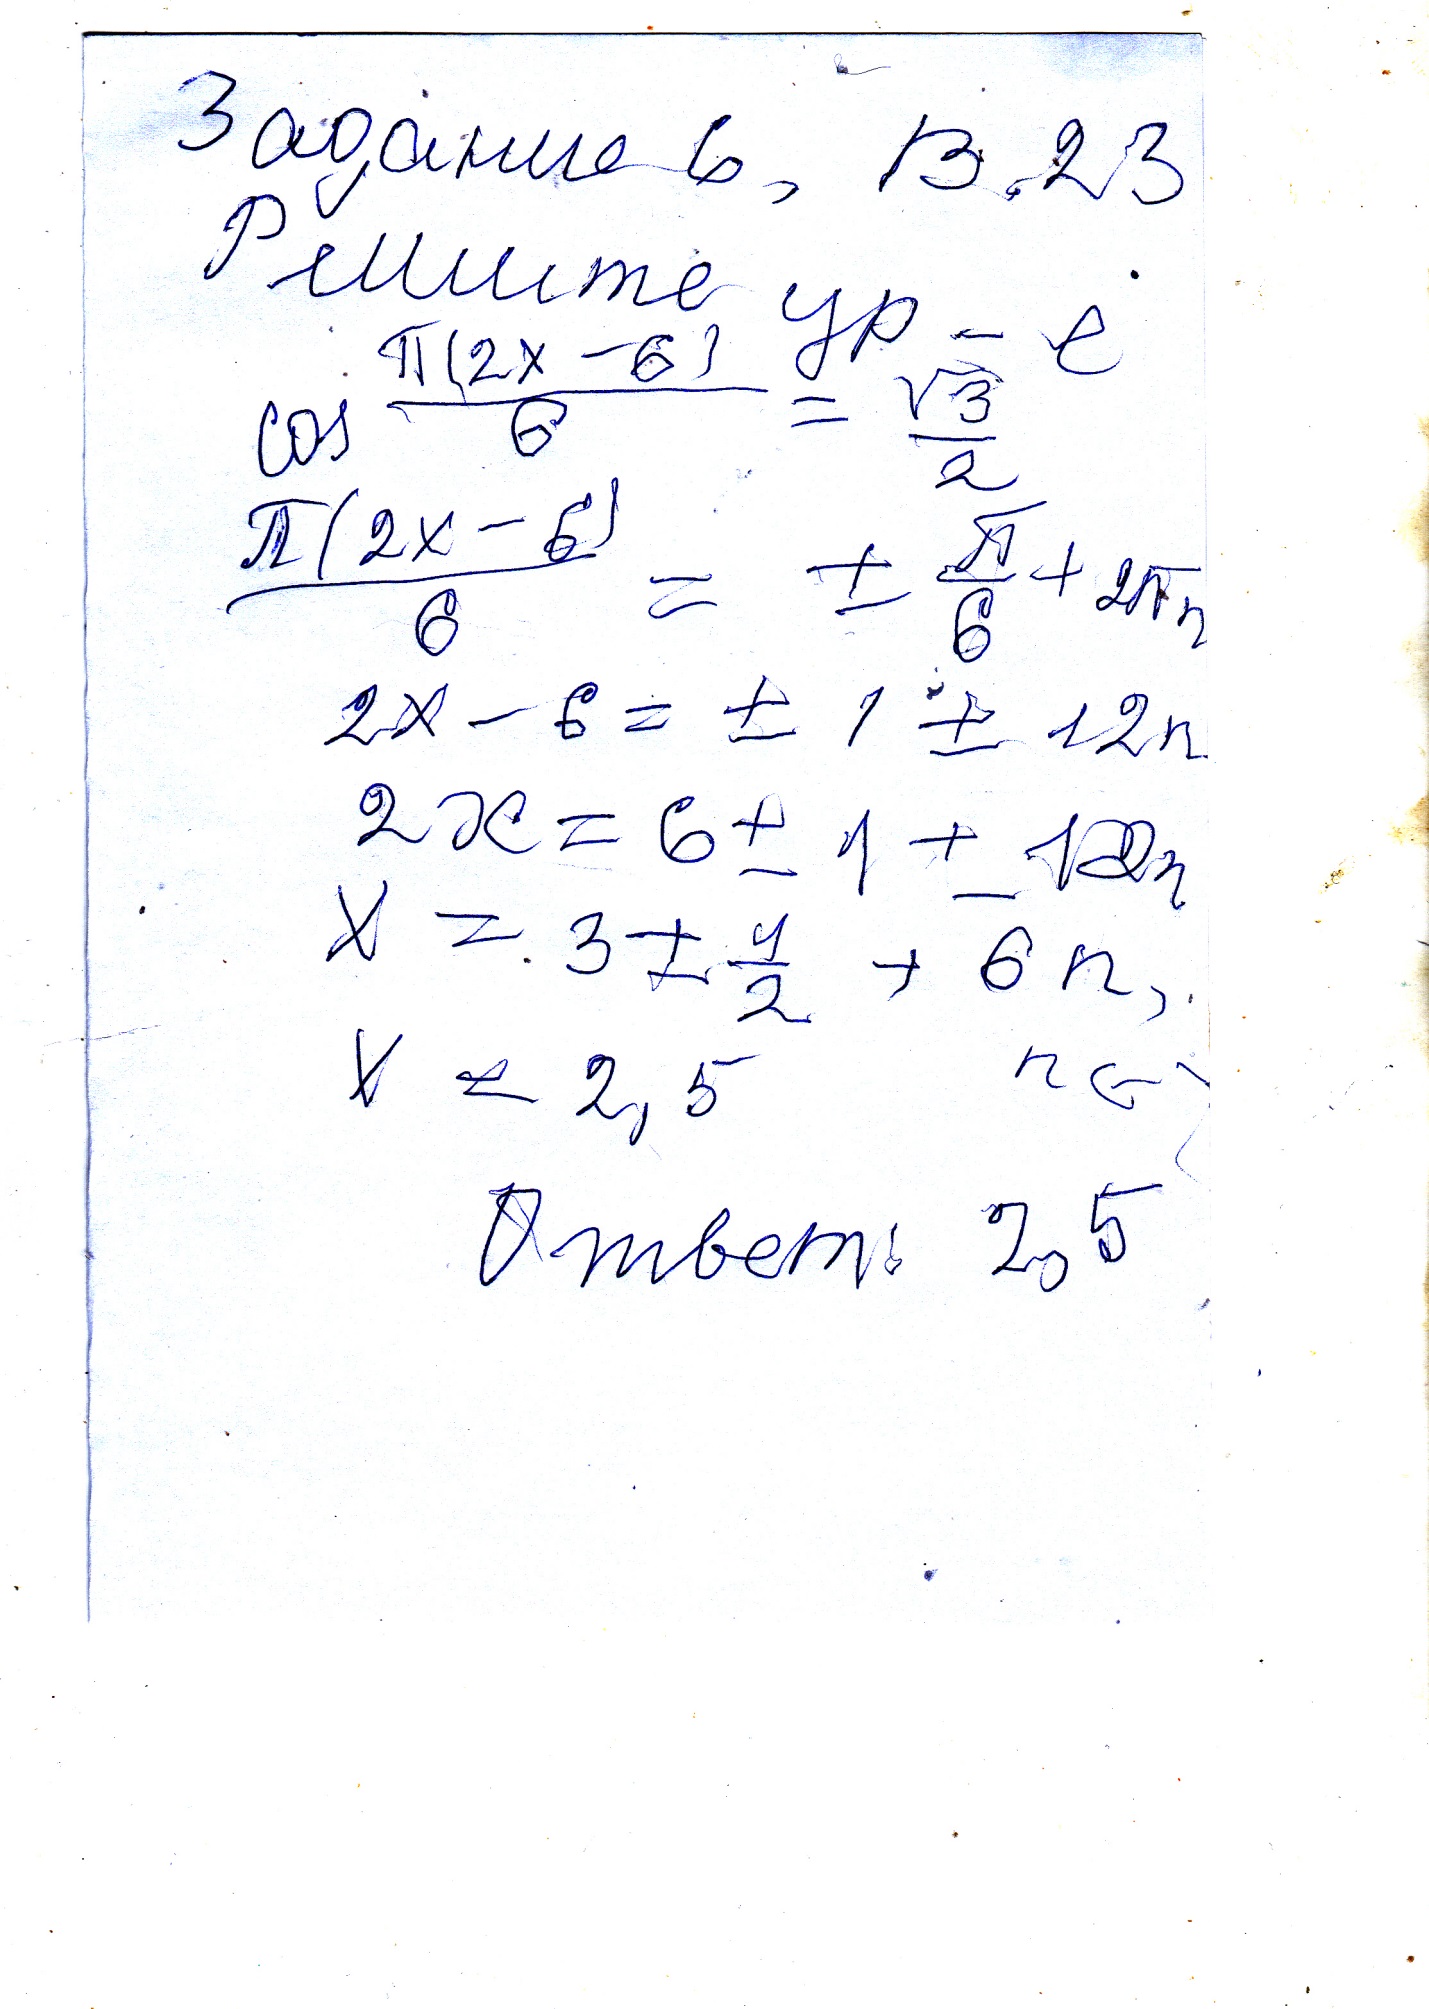 Задание 6, В.23
Решите ур-е
cos π(2x-6)/6 = √3/2
π(2x-6)/6 = ± π/6 + 2πn
2x-6 = ± 1 ± 12n
2x = 6 ± 1 ± 12n
x = 3 ± 1/2 + 6n,
n ∈
x = 2,5
Ответ: 2,5